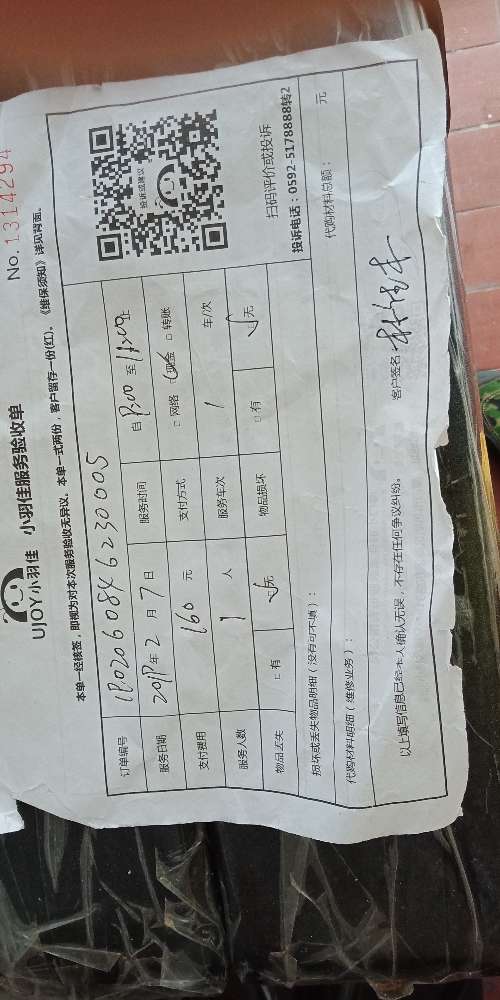 No. 1314294
UJOY小羽佳 小羽佳服务验收单
本单一经核签，即视为对本次服务验收无异议。本单一式两份，客户留存一份(红)。《维保须知》详见背面。
订单编号
服务日期 年 2 月 7 日 服务时间 自 至 止
支付费用 160 元 支付方式 □ 网络 ☑ 现金 □ 转账
服务人数 1 人 服务车次 1 车/次
物品丢失 □ 有 ☑ 无 物品损坏 □ 有 ☑ 无
投诉或建议
扫码评价或投诉
投诉电话：0592-5178888转2
损坏或丢失物品明细（没有可不填）：
代购材料明细（维修业务）： 代购材料总额： 元
以上填写信息已经本人确认无误，不存在任何争议纠纷。 客户签名